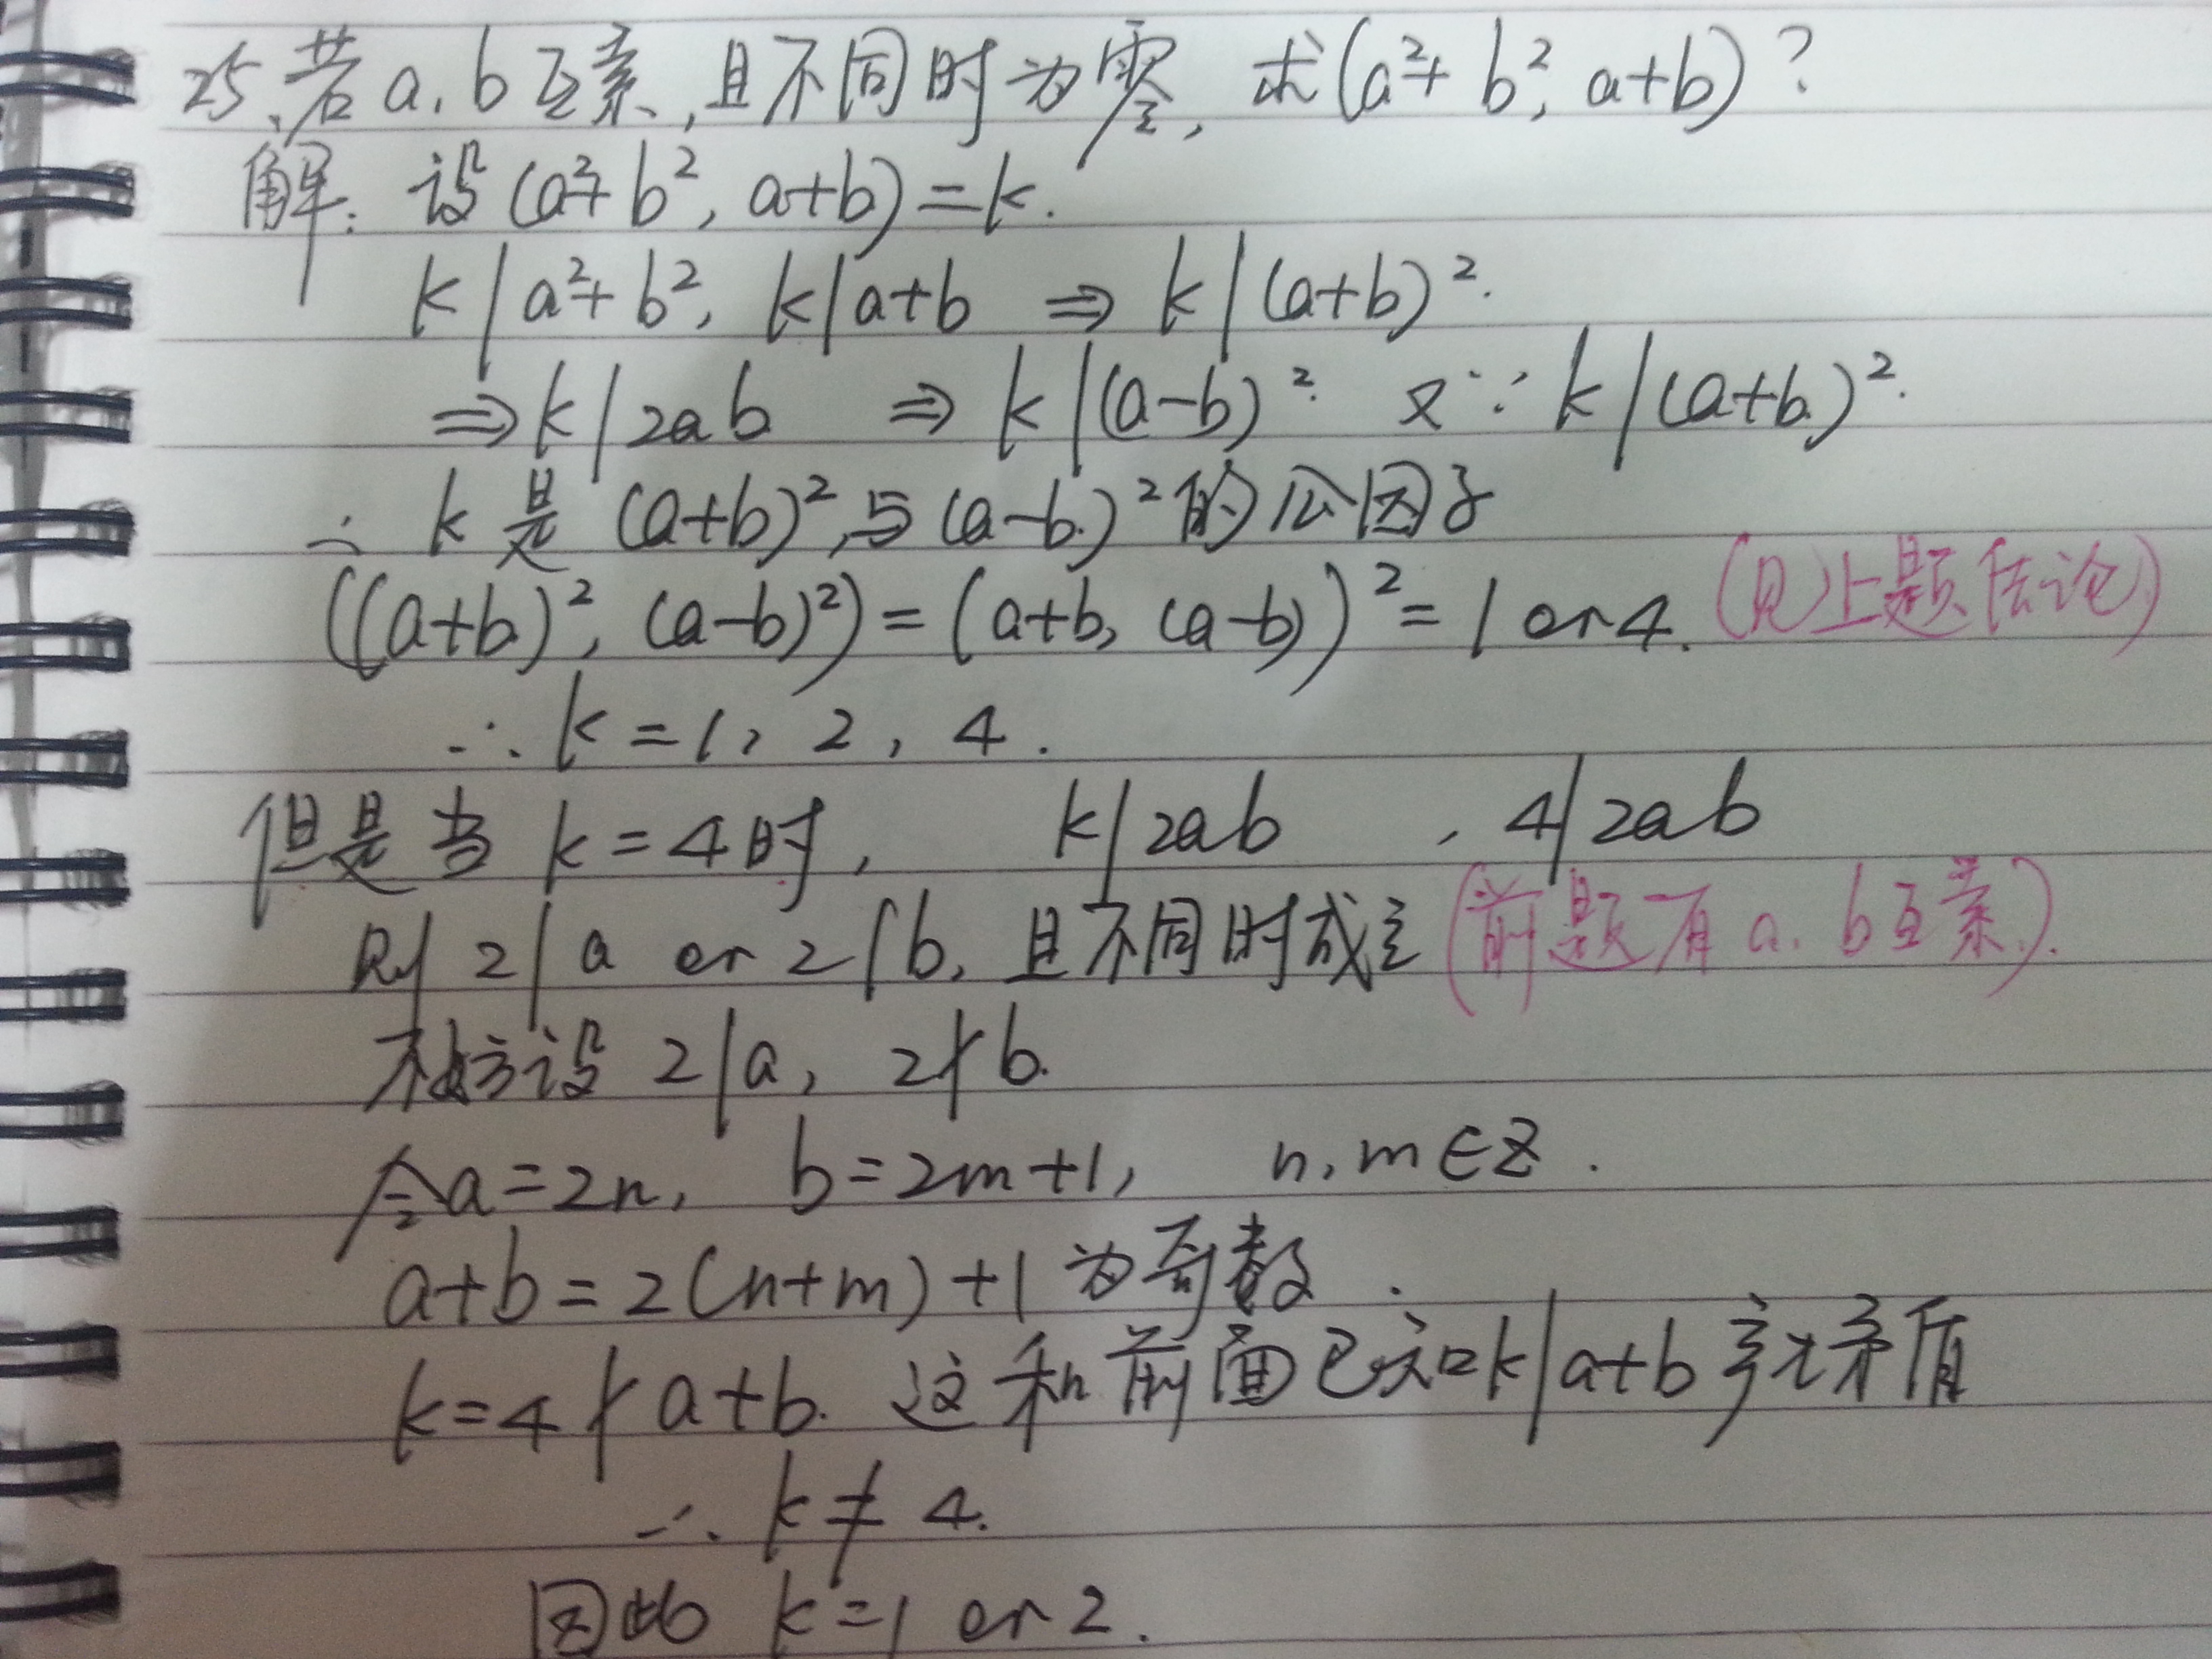 25、若a,b互素,且不同时为零,求(a²+b²,a+b)?
解:设(a²+b²,a+b)=k.
k|a²+b², k|a+b ⇒ k|(a+b)².
⇒k|2ab ⇒ k|(a-b)². 又∵k|(a+b)².
∴ k是(a+b)²与(a-b)²的公因子
((a+b)²,(a-b)²)=(a+b,(a-b))²=1 or 4. (见上题结论)
∴ k=1, 2, 4.
但是当k=4时, k|2ab , 4|2ab
则 2|a or 2|b, 且不同时成立(前题有a,b互素).
不妨设 2|a, 2∤b.
令a=2n, b=2m+1, n,m∈Z.
a+b=2(n+m)+1为奇数.
k=4∤a+b. 这和前面已知k|a+b 矛盾
∴ k≠4.
因此 k=1 or 2.